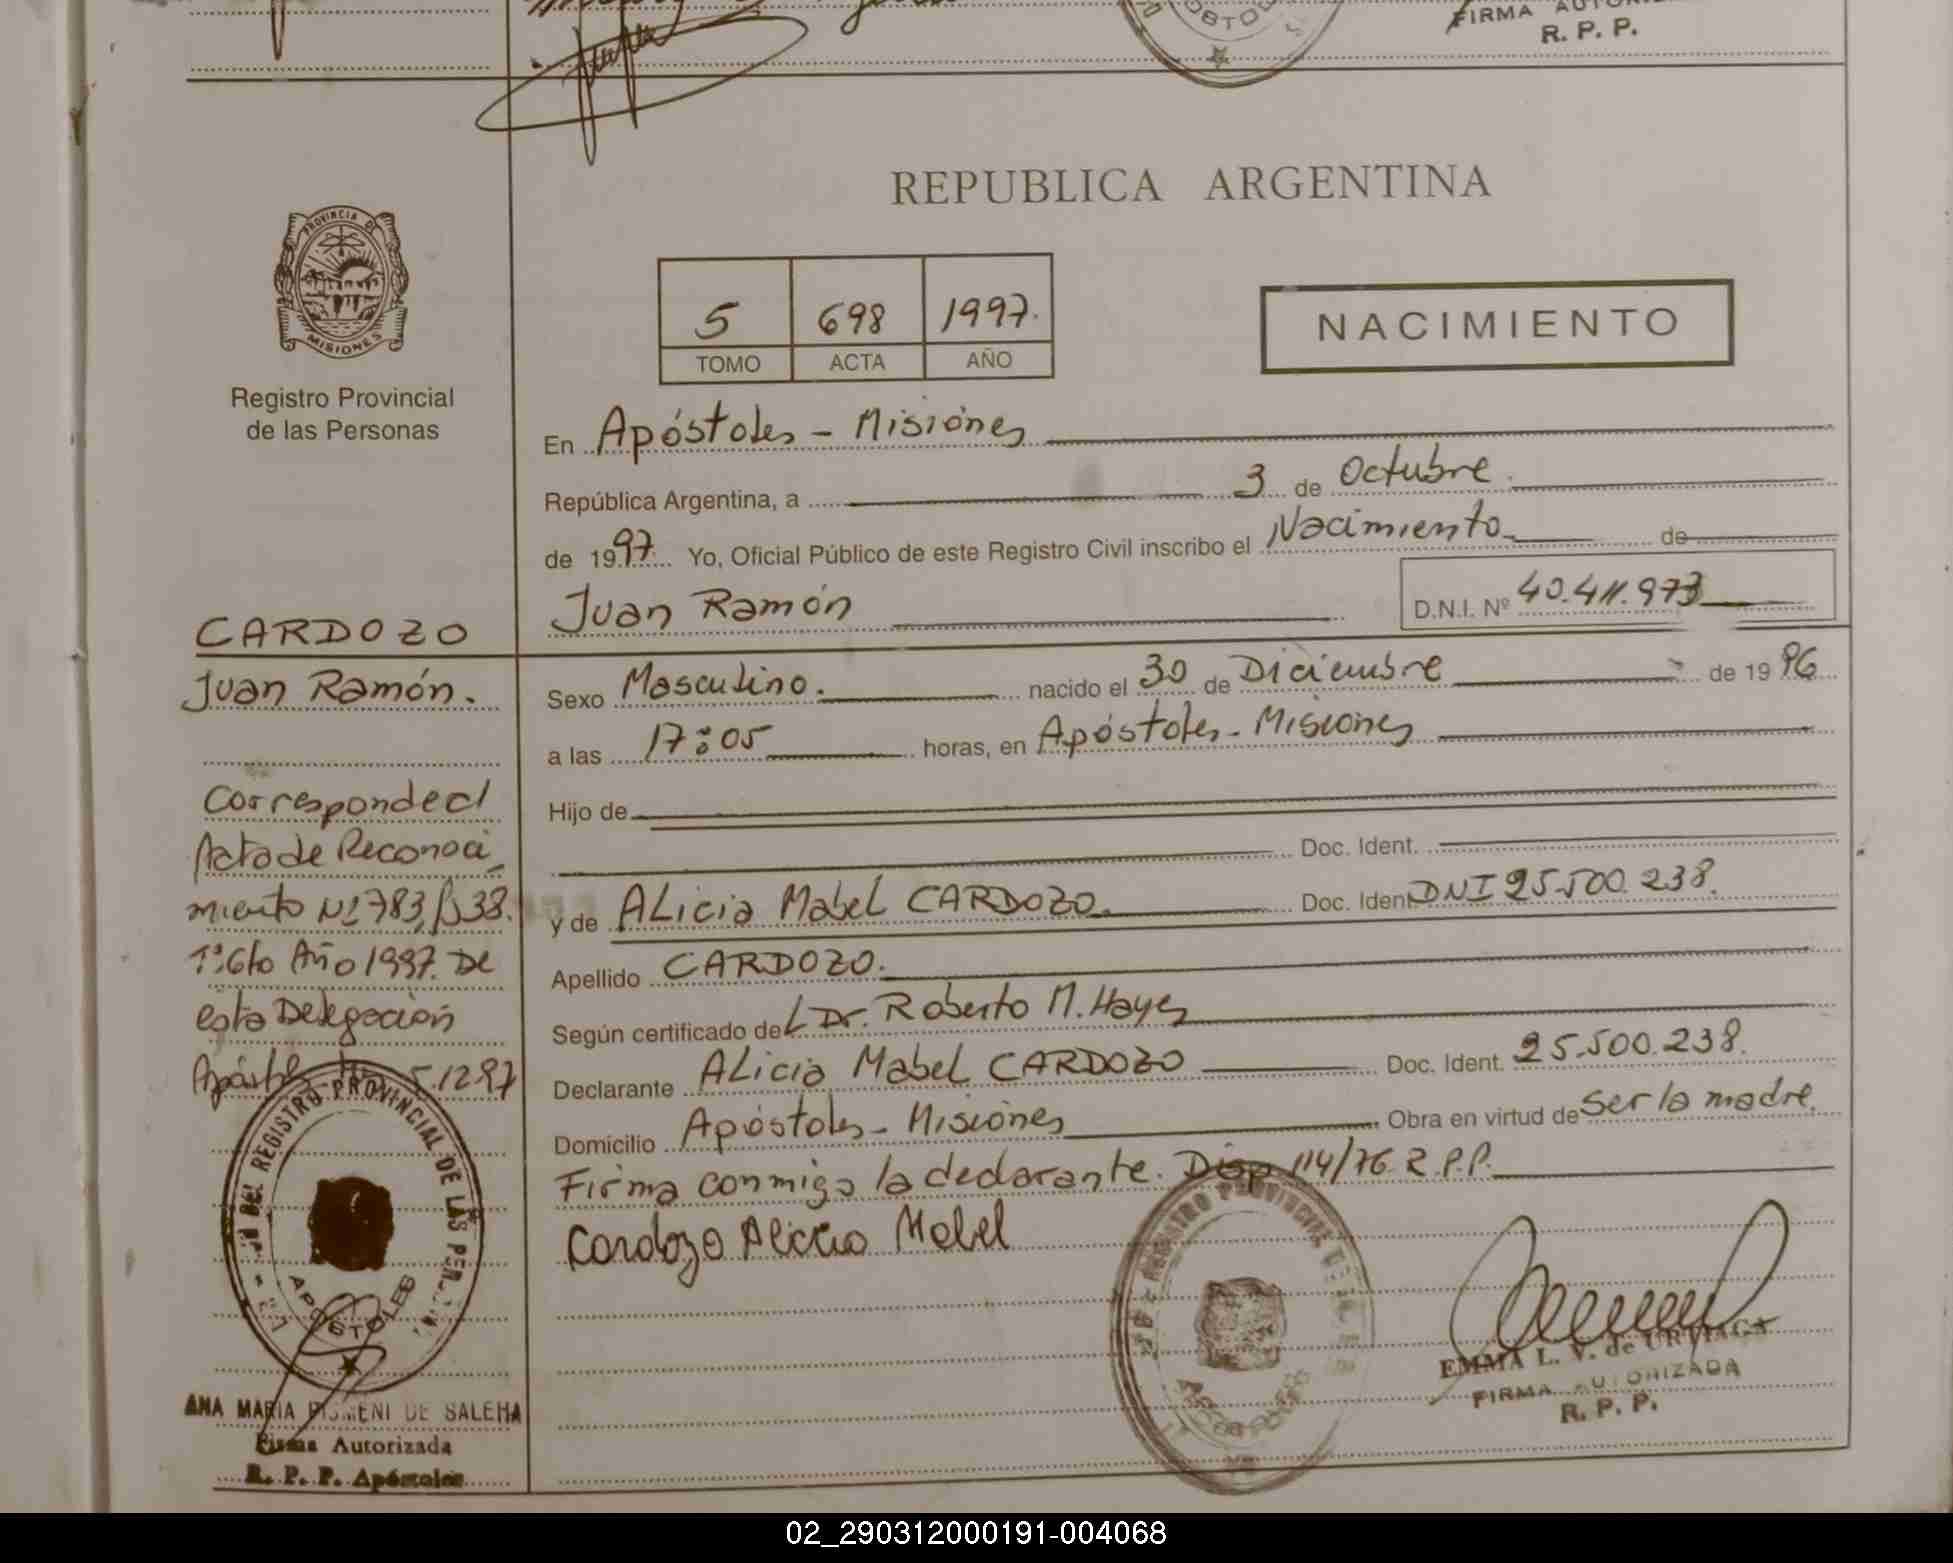 FIRMA
R. P. P.
REPUBLICA ARGENTINA
PROVINCIA DE
MISIONES
Registro Provincial
de las Personas
5 698 1997.
TOMO ACTA AÑO
NACIMIENTO
En Apóstoles - Misiónes
República Argentina, a 3 de Octubre
de 1997. Yo, Oficial Público de este Registro Civil inscribo el Nacimiento de
Juan Ramón
D.N.I. Nº 40.411.973
CARDOZO
Juan Ramón.
Sexo Masculino. nacido el 30 de Diciembre de 1996
a las 17:05 horas, en Apóstoles - Misiones
Hijo de
Doc. Ident.
y de ALicia MabeL CARDOZO. Doc. Ident DNI 25.500.238.
Apellido CARDOZO.
Según certificado deL Dr. Roberto M. Hayes
Declarante ALicia MabeL CARDOZO Doc. Ident. 25.500.238.
Domicilio Apóstoles - Misiónes Obra en virtud de Ser la madre.
Firma conmigo la declarante. Disp 114/76. R.P.P.
Cardozo Alicia Mabel
Corresponde al
Acta de Reconoci
miento Nº 783, fº 38.
Tº 6to Año 1997. De
esta Delegación
5.12.97
REGISTRO PROVINCIAL DE LAS
APOSTOLES
ANA MARIA DE SALEHA
Firma Autorizada
R. P. P. Apóstoles
REGISTRO PROVINCIAL
EMMA L. V. de URTIAGA
FIRMA AUTORIZADA
R. P. P.
02_290312000191-004068